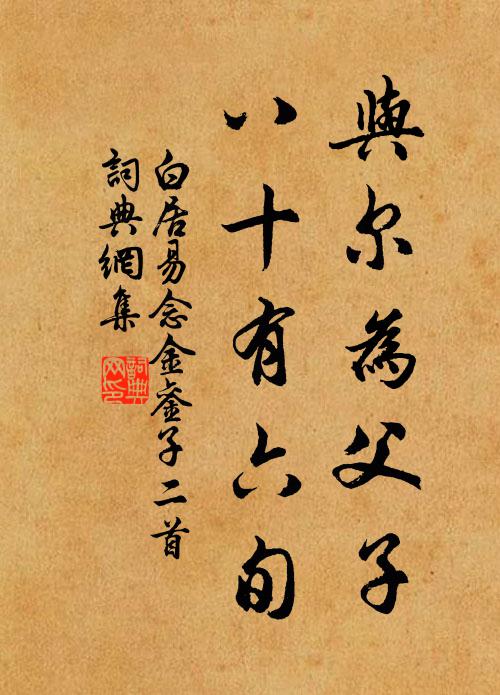 與尔為父子
八十有六旬
白居易念金鑾子二首
詞典網集
詞典
网印